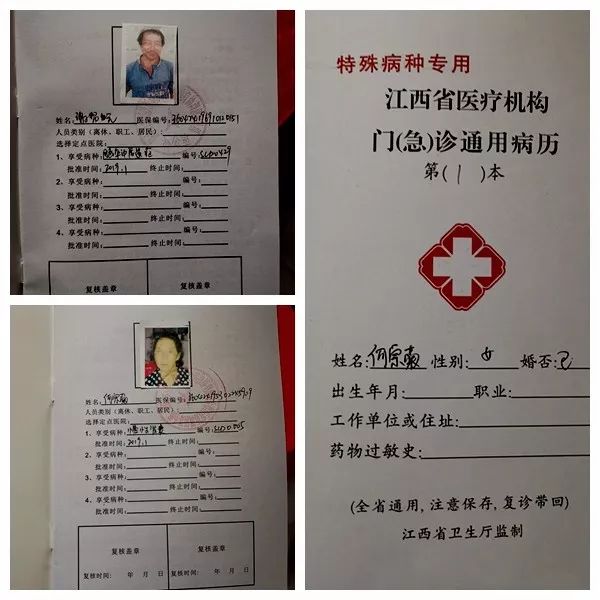 姓名: 医保编号:
人员类别(离休、职工、居民):
选择定点医院:
1、享受病种: 编号:
批准时间:2019.1 终止时间:
2、享受病种: 编号:
批准时间: 终止时间:
3、享受病种: 编号:
批准时间: 终止时间:
4、享受病种: 编号:
批准时间: 终止时间:
复核盖章 复核盖章
姓名: 医保编号:
人员类别(离休、职工、居民):
选择定点医院:
1、享受病种: 编号:
批准时间:2019.1 终止时间:
2、享受病种: 编号:
批准时间: 终止时间:
3、享受病种: 编号:
批准时间: 终止时间:
4、享受病种: 编号:
批准时间: 终止时间:
复核盖章 复核盖章
复核时间: 年 月 日 复核时间: 年 月 日
特殊病种专用
江西省医疗机构
门(急)诊通用病历
第(1)本
姓名:何宗菊 性别:女 婚否:已
出生年月: 职业:
工作单位或住址:
药物过敏史:
(全省通用,注意保存,复诊带回)
江西省卫生厅监制